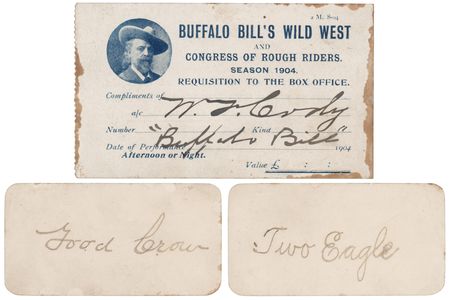 2 M. 8-04
BUFFALO BILL'S WILD WEST
AND
CONGRESS OF ROUGH RIDERS.
SEASON 1904.
REQUISITION TO THE BOX OFFICE.
Compliments of
a/c W. F. Cody
Number Kind
"Buffalo Bill"
Date of Performance 1904
Afternoon or Night.
Value £ : :
Good Crow
Two Eagle